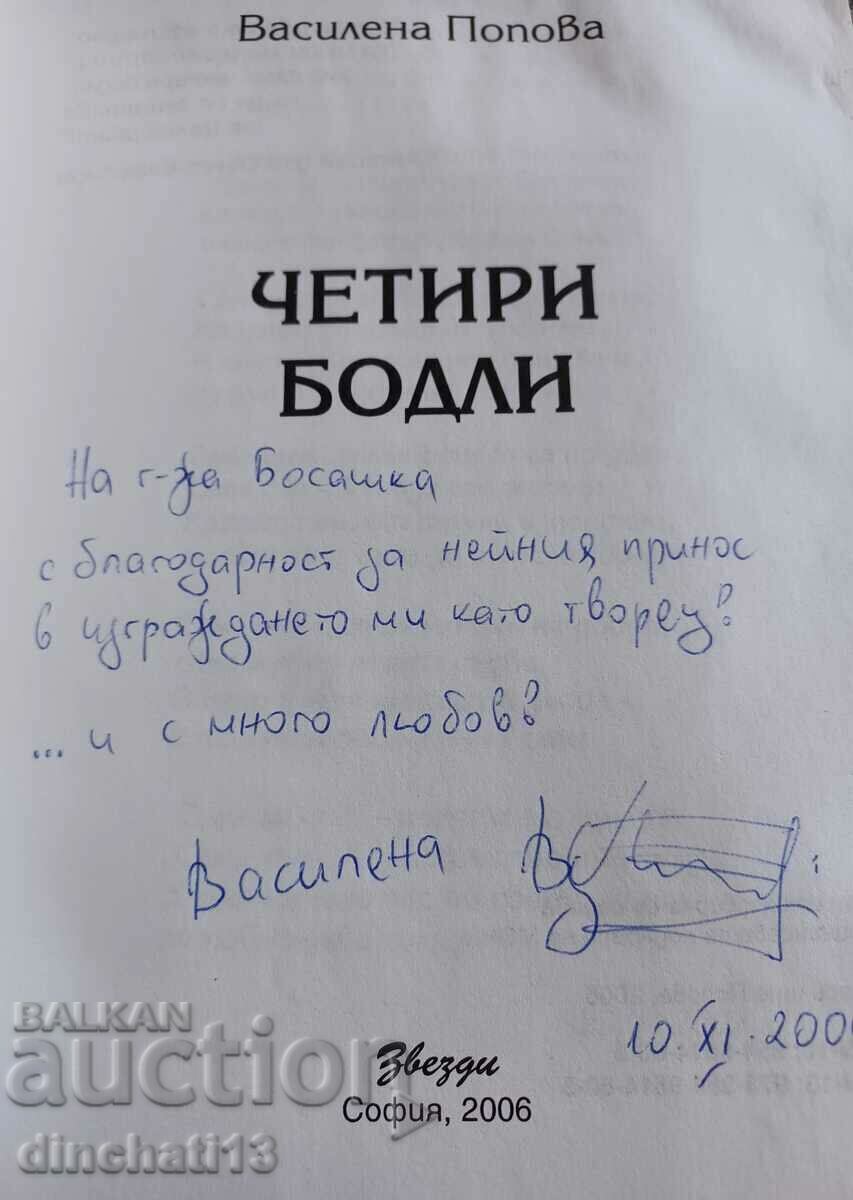 Василена Попова
ЧЕТИРИ
БОДЛИ
На г-жа Босашка
с благодарност за нейния принос
в изграждането ми като творец!
... и с много любов!
Василена
10. XI. 200
Звезди
София, 2006
BALKAN
auction
dinchati13